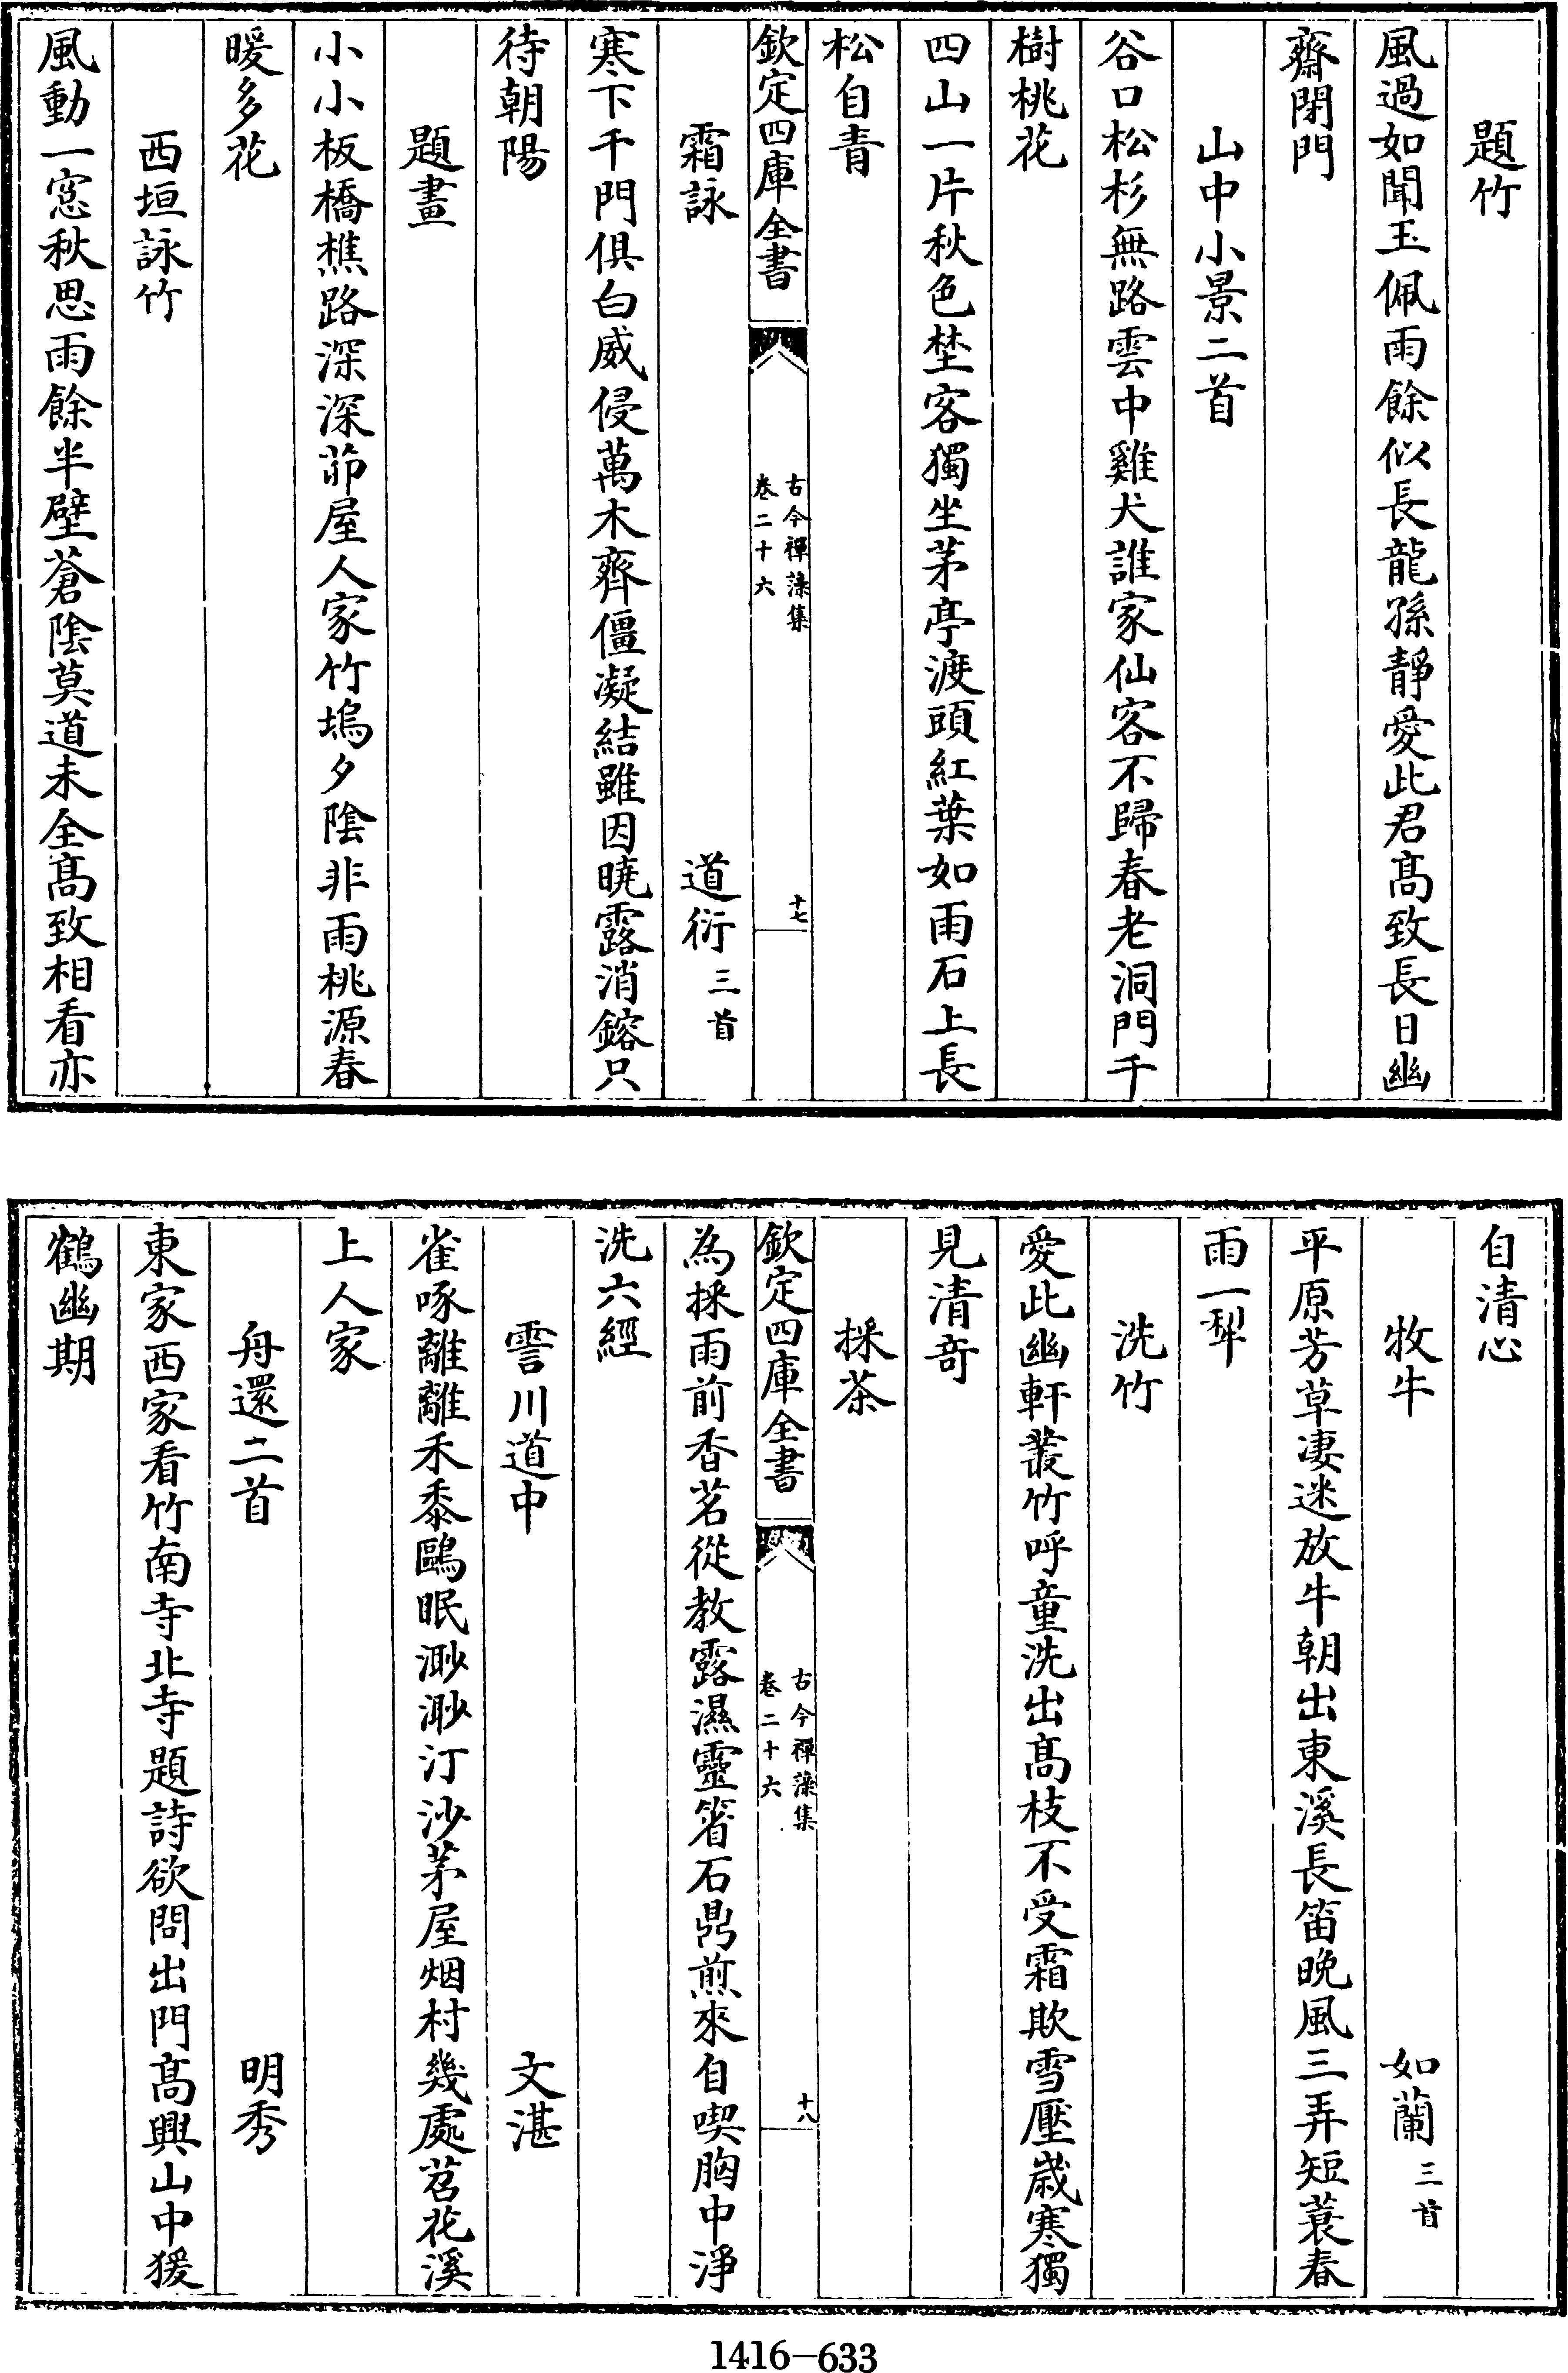 題竹
風過如聞玉佩雨餘似長龍孫靜愛此君髙致長日幽
齋閉門
山中小景二首
谷口松杉無路雲中雞犬誰家仙客不歸春老洞門千
樹桃花
四山一片秋色埜客獨坐茅亭渡頭紅葉如雨石上長
松自青
欽定四庫全書
古今禪藻集
卷二十六
十七
霜詠 道衍三首
寒下千門俱白威侵萬木齊僵凝結雖因曉露消鎔只
待朝陽
題畫
小小板橋樵路深深茆屋人家竹塢夕陰非雨桃源春
暖多花
西垣詠竹
風動一窓秋思雨餘半壁蒼陰莫道未全髙致相看亦
自清心
牧牛 如蘭三首
平原芳草凄迷放牛朝出東溪長笛晚風三弄短蓑春
雨一犂
洗竹
愛此幽軒叢竹呼童洗出髙枝不受霜欺雪壓歲寒獨
見清奇
採茶
欽定四庫全書
古今禪藻集
卷二十六
十八
為採雨前香茗從教露濕靈篛石鼎煎來自喫胸中淨
洗六經
霅川道中 文湛
雀啄離離禾黍鷗眠渺渺汀沙茅屋烟村幾處苕花溪
上人家
舟還二首 明秀
東家西家看竹南寺北寺題詩欲問出門髙興山中猨
鶴幽期
1416-633